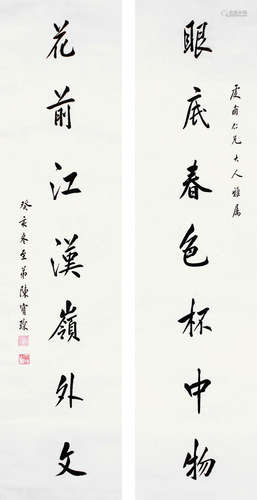 仁兄大人雅屬
眼底春色杯中物
花前江漢嶺外文
癸亥冬至弟陳寶琛